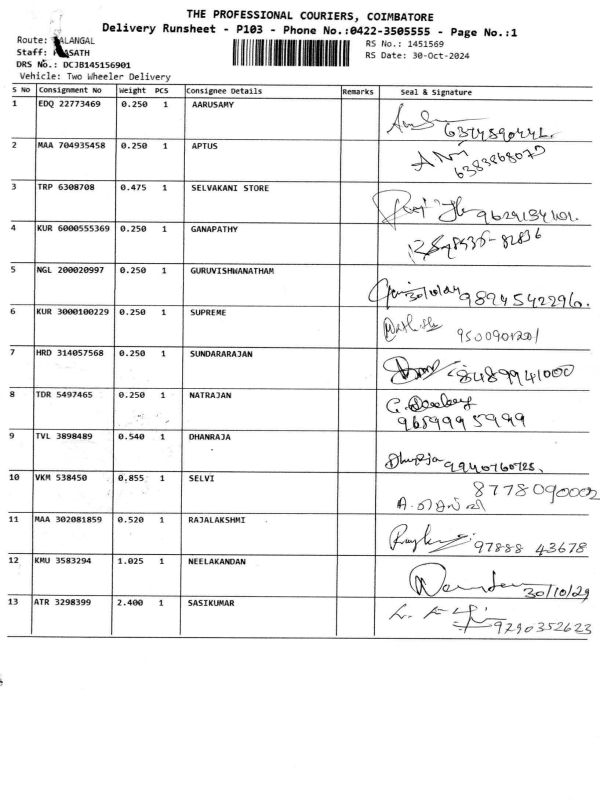 THE PROFESSIONAL COURIERS, COIMBATORE
Delivery Runsheet - P103 - Phone No.:0422-3505555 - Page No.:1
Route: ALANGAL
RS No.: 1451569
Staff: ASATH
RS Date: 30-Oct-2024
DRS No.: DCJB145156901
Vehicle: Two Wheeler Delivery
S No Consignment No Weight PCS Consignee Details Remarks Seal & Signature
1 EDQ 22773469 0.250 1 AARUSAMY
2 MAA 704935458 0.250 1 APTUS
6383868070
3 TRP 6308708 0.475 1 SELVAKANI STORE
9629134101.
4 KUR 6000555369 0.250 1 GANAPATHY
8936-82836
5 NGL 200020997 0.250 1 GURUVISHWANATHAM
30/10/24 9894542296.
6 KUR 3000100229 0.250 1 SUPREME
9500901201
7 HRD 314057568 0.250 1 SUNDARARAJAN
8489941000
8 TDR 5497465 0.250 1 NATRAJAN
9689995999
9 TVL 3898489 0.540 1 DHANRAJA
Dhuraja 9940760725.
10 VKM 538450 0.855 1 SELVI
8778090002
11 MAA 302081859 0.520 1 RAJALAKSHMI
97888 43678
12 KMU 3583294 1.025 1 NEELAKANDAN
30/10/24
13 ATR 3298399 2.400 1 SASIKUMAR
9790352623